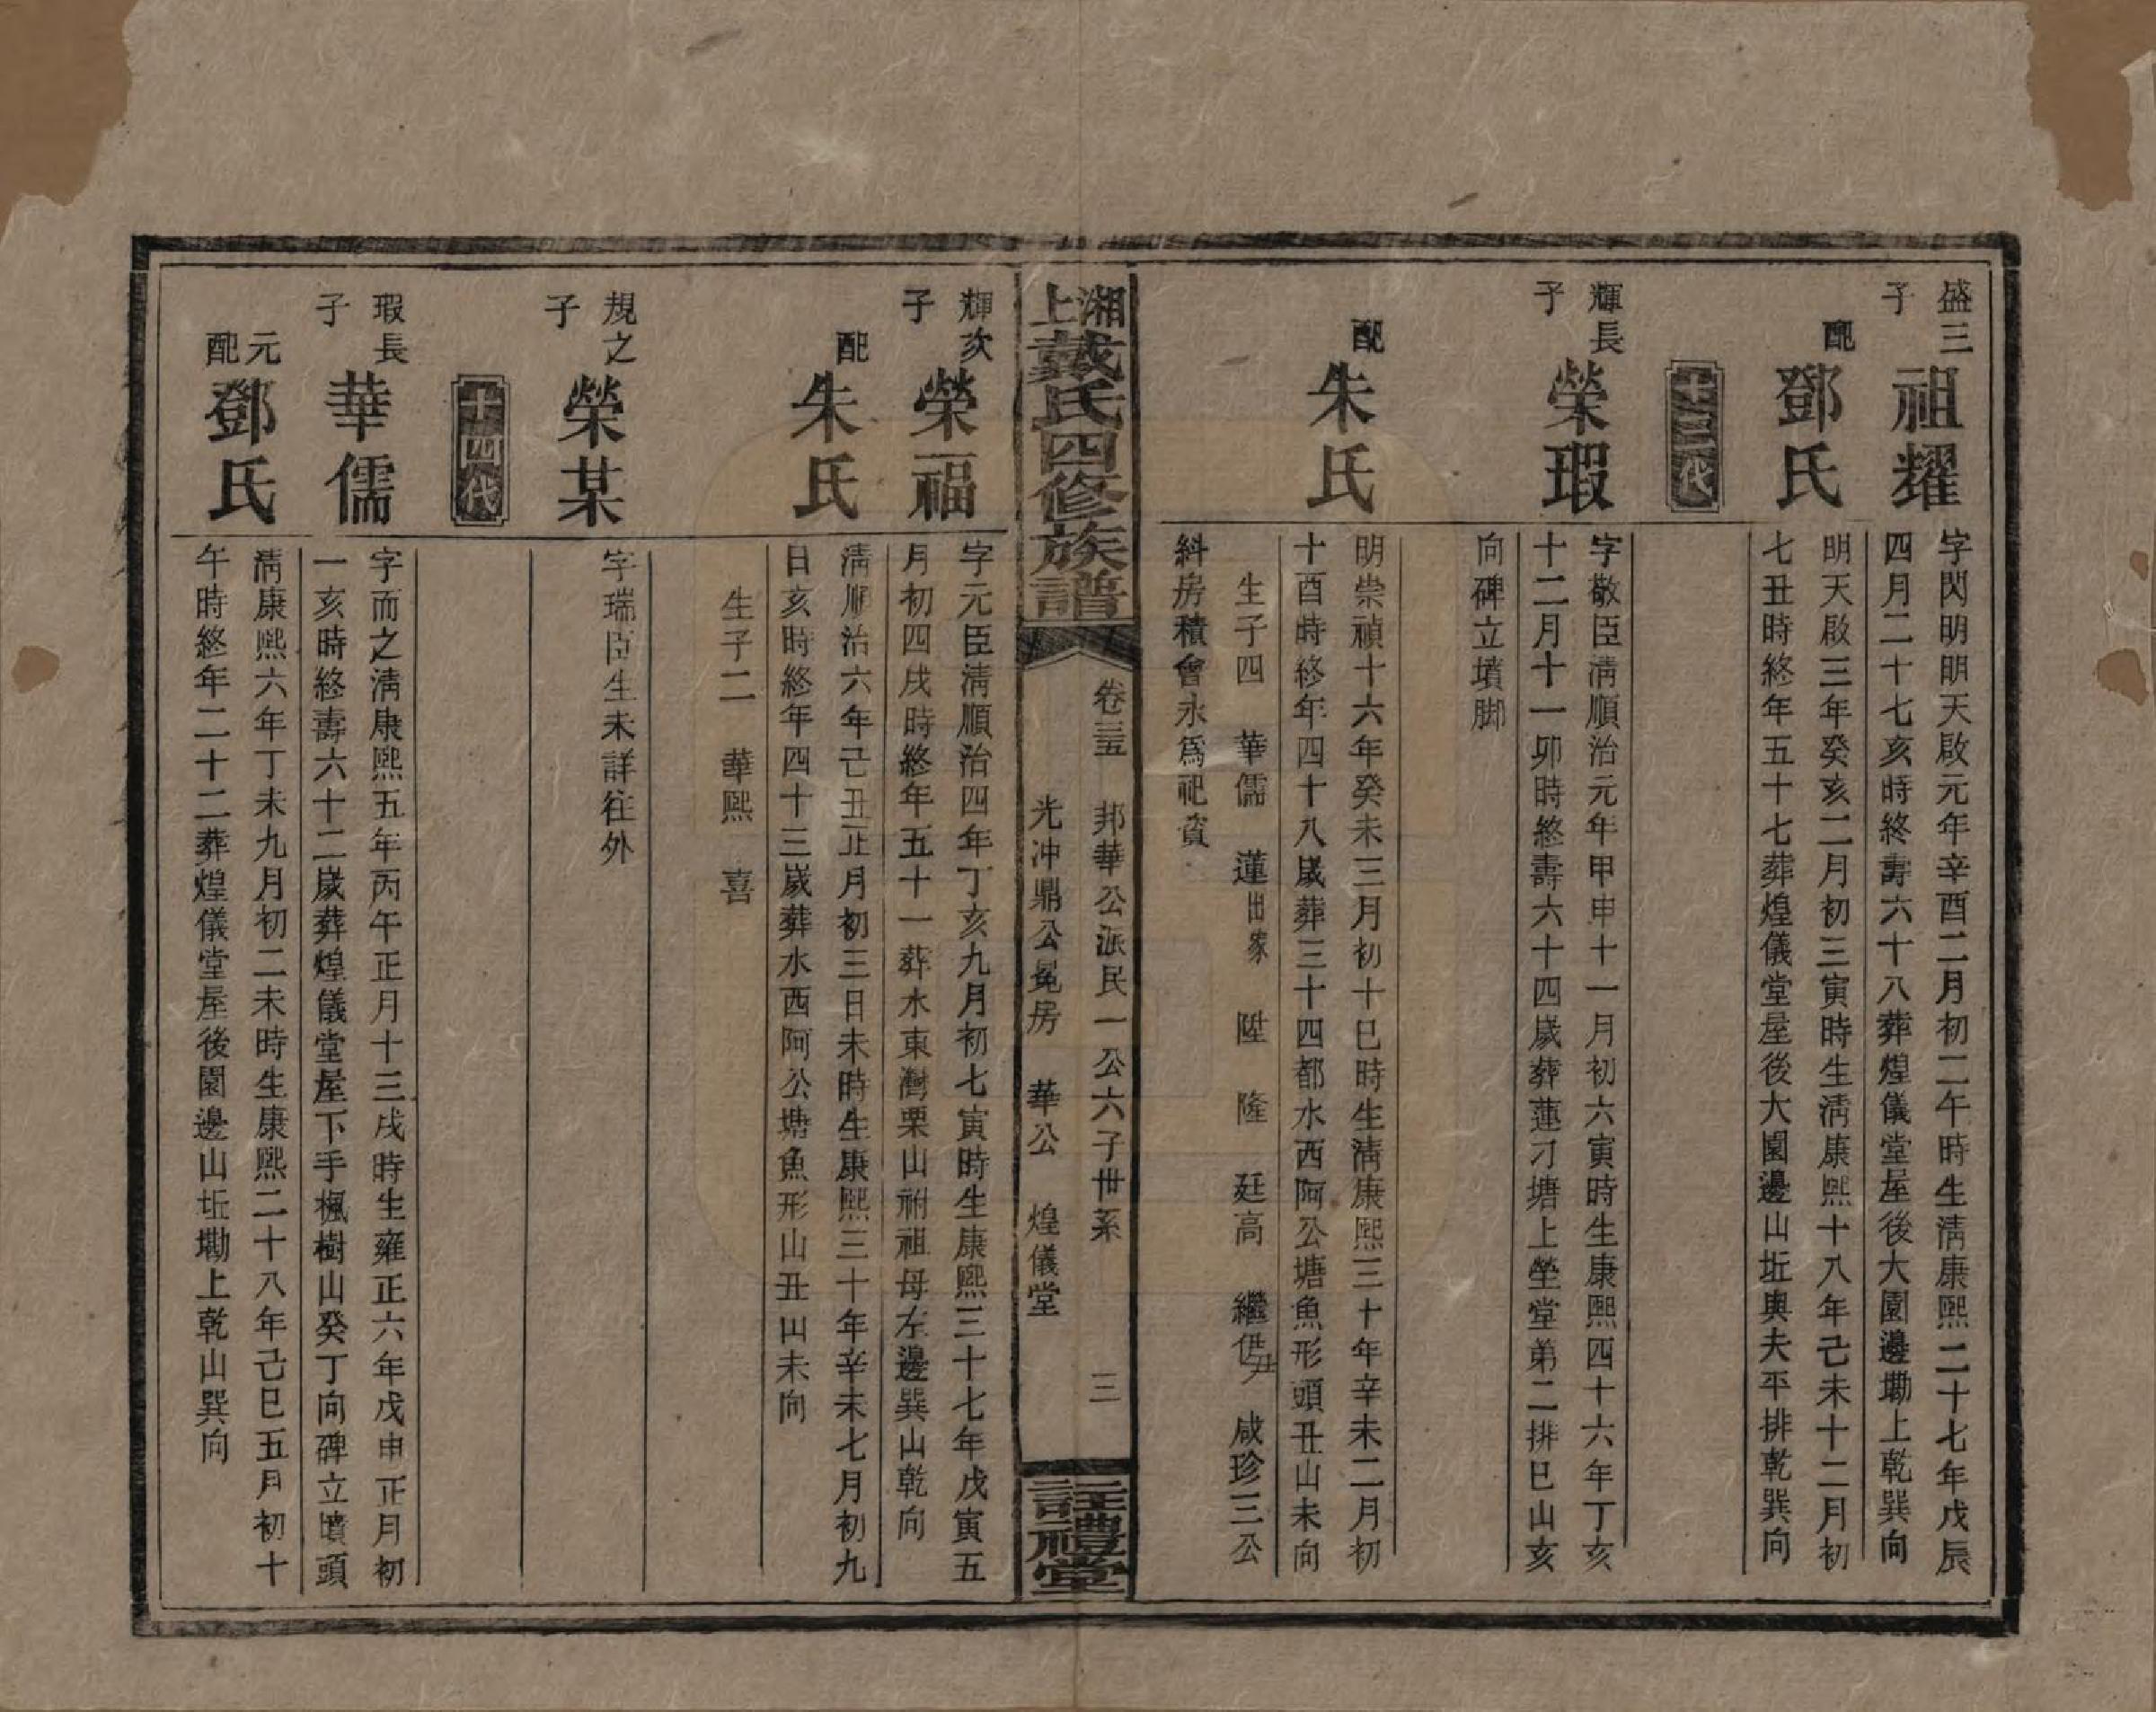 盛三子
祖耀
字閃明明天啟元年辛酉二月初二午時生清康熙二十七年戊辰
四月二十七亥時終壽六十八葬煌儀堂屋後大園邊墈上乾巽向
配
鄧氏
明天啟三年癸亥二月初三寅時生清康熙十八年己未十二月初
七丑時終年五十七葬煌儀堂屋後大園邊山坵與夫平排乾巽向
十三代
輝長子
榮瑕
字敬臣清順治元年甲申十一月初六寅時生康熙四十六年丁亥
十二月十一卯時終壽六十四歲葬蓮刁塘上塋堂第二排巳山亥
向碑立墳脚
配
朱氏
明崇禎十六年癸未三月初十巳時生清康熙三十年辛未二月初
十酉時終年四十八歲葬三十四都水西阿公塘魚形頭丑山未向
生子四 華儒 蓮出家 陞 隆 廷高 繼 咸珍三公
斜房積會永為祀資
湘上戴氏四修族譜
卷三五 邦華公派民一公六子世系 三
光冲鼎公冕房 華公 煌儀堂
註禮堂
輝次子
榮福
字元臣清順治四年丁亥九月初七寅時生康熙三十七年戊寅五
月初四戌時終年五十一葬水東灣栗山祔祖母左邊巽山乾向
配
朱氏
清順治六年己丑正月初三日未時生康熙三十年辛未七月初九
日亥時終年四十三歲葬水西阿公塘魚形山丑山未向
生子二 華熙 喜
規之子
榮某
字瑞臣生未詳往外
十四代
瑕長子
華儒
字而之清康熙五年丙午正月十三戌時生雍正六年戊申正月初
一亥時終壽六十二歲葬煌儀堂屋下手楓樹山癸丁向碑立墳頭
元配
鄧氏
清康熙六年丁未九月初二未時生康熙二十八年己巳五月初十
午時終年二十二葬煌儀堂屋後園邊山坵墈上乾山巽向